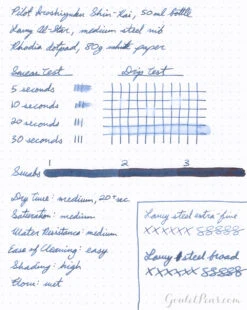 Pilot Iroshizuku Shin-kai, 50ml bottle
Lamy Al-Star, medium steel nib
Rhodia dotpad, 80g white paper
Smear Test
Drip Test
5 seconds
10 seconds
20 seconds
30 seconds
Swabs
1
2
3
Dry Time: medium, 20+sec
Saturation: medium
Water Resistance: medium
Ease of Cleaning: easy
Shading: high
Flow: wet
Lamy steel extra-fine
xxxxxx 8888888
Lamy steel broad
xxxxxx 8888888
GouletPens.com